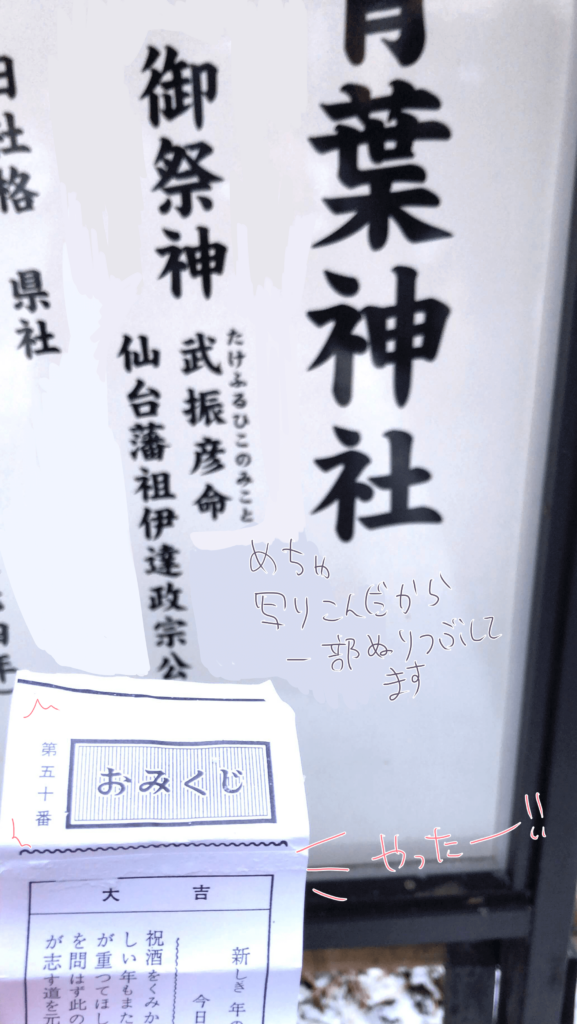 青葉神社
御祭神
たけふるひこのみこと
武振彦命
仙台藩祖伊達政宗公
旧社格 県社
めちゃ
写りこんだから
一部ぬりつぶして
ます
第五十番
おみくじ
やったー!!
大吉
新しき年の
今日
祝酒をくみか
しい年もまた
が重つてほし
を問はず此の
が志す道を元